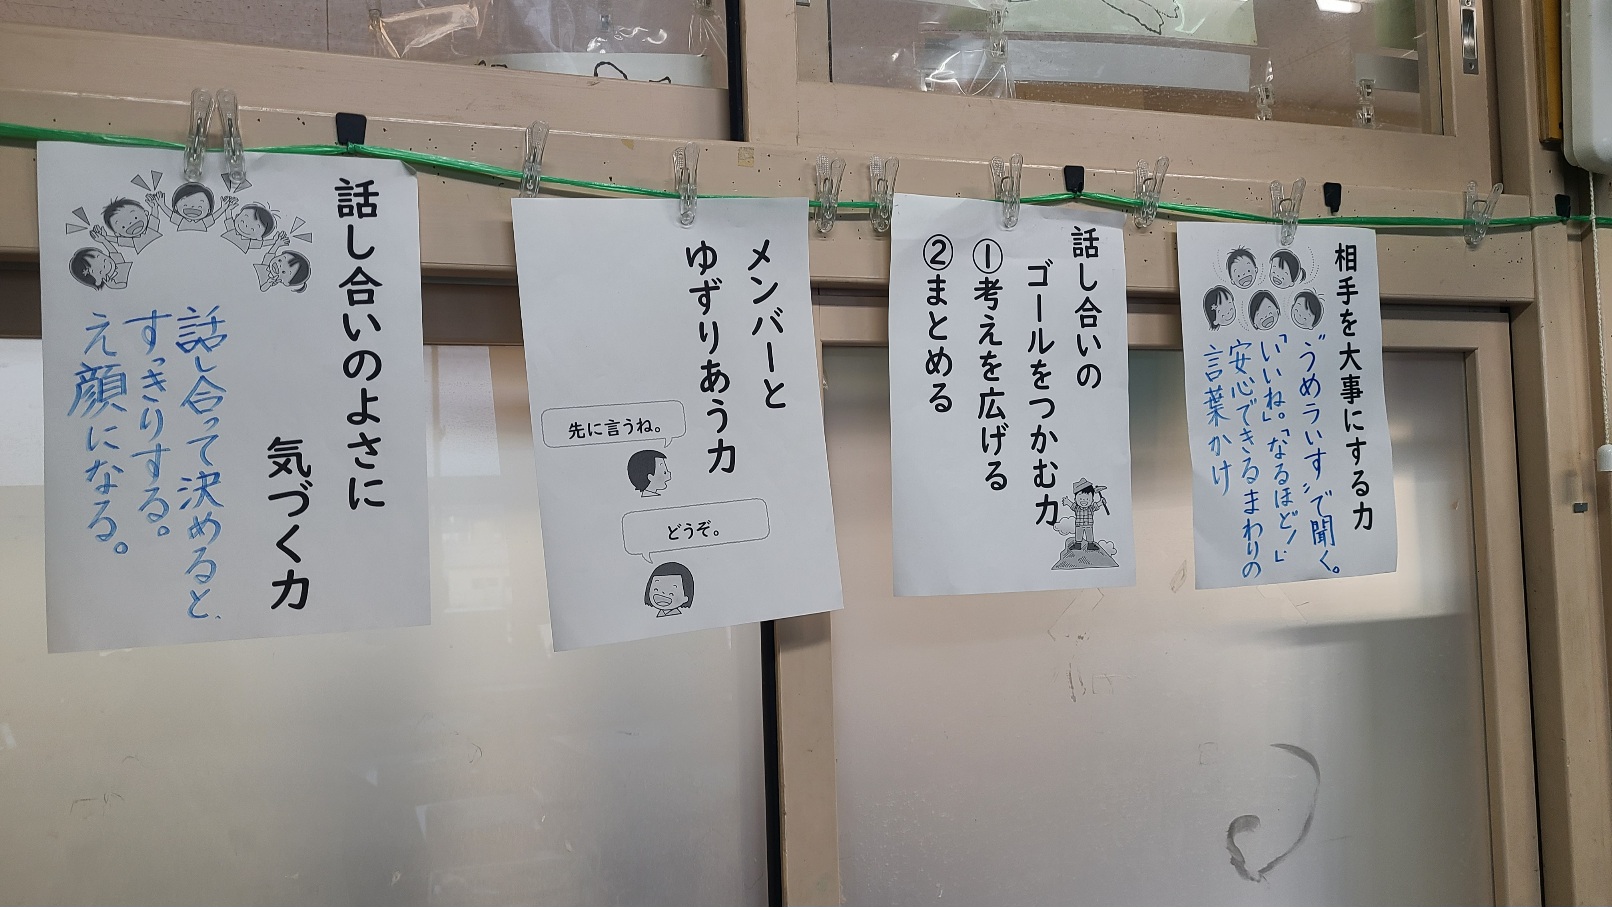 相手を大事にする力
"うめライす"で聞く。
「いいね。」「なるほど!」
安心できるまわりの
言葉かけ
話し合いの
ゴールをつかむ力
①考えを広げる
②まとめる
メンバーと
ゆずりあう力
先に言うね。
どうぞ。
話し合いのよさに
気づく力
話し合って決めると、
すっきりする。
え顔になる。